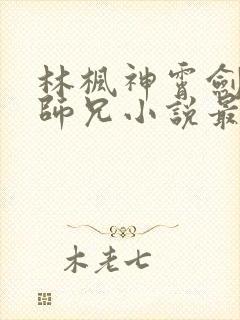 林楓神霄劍
師兄小說最
木老七